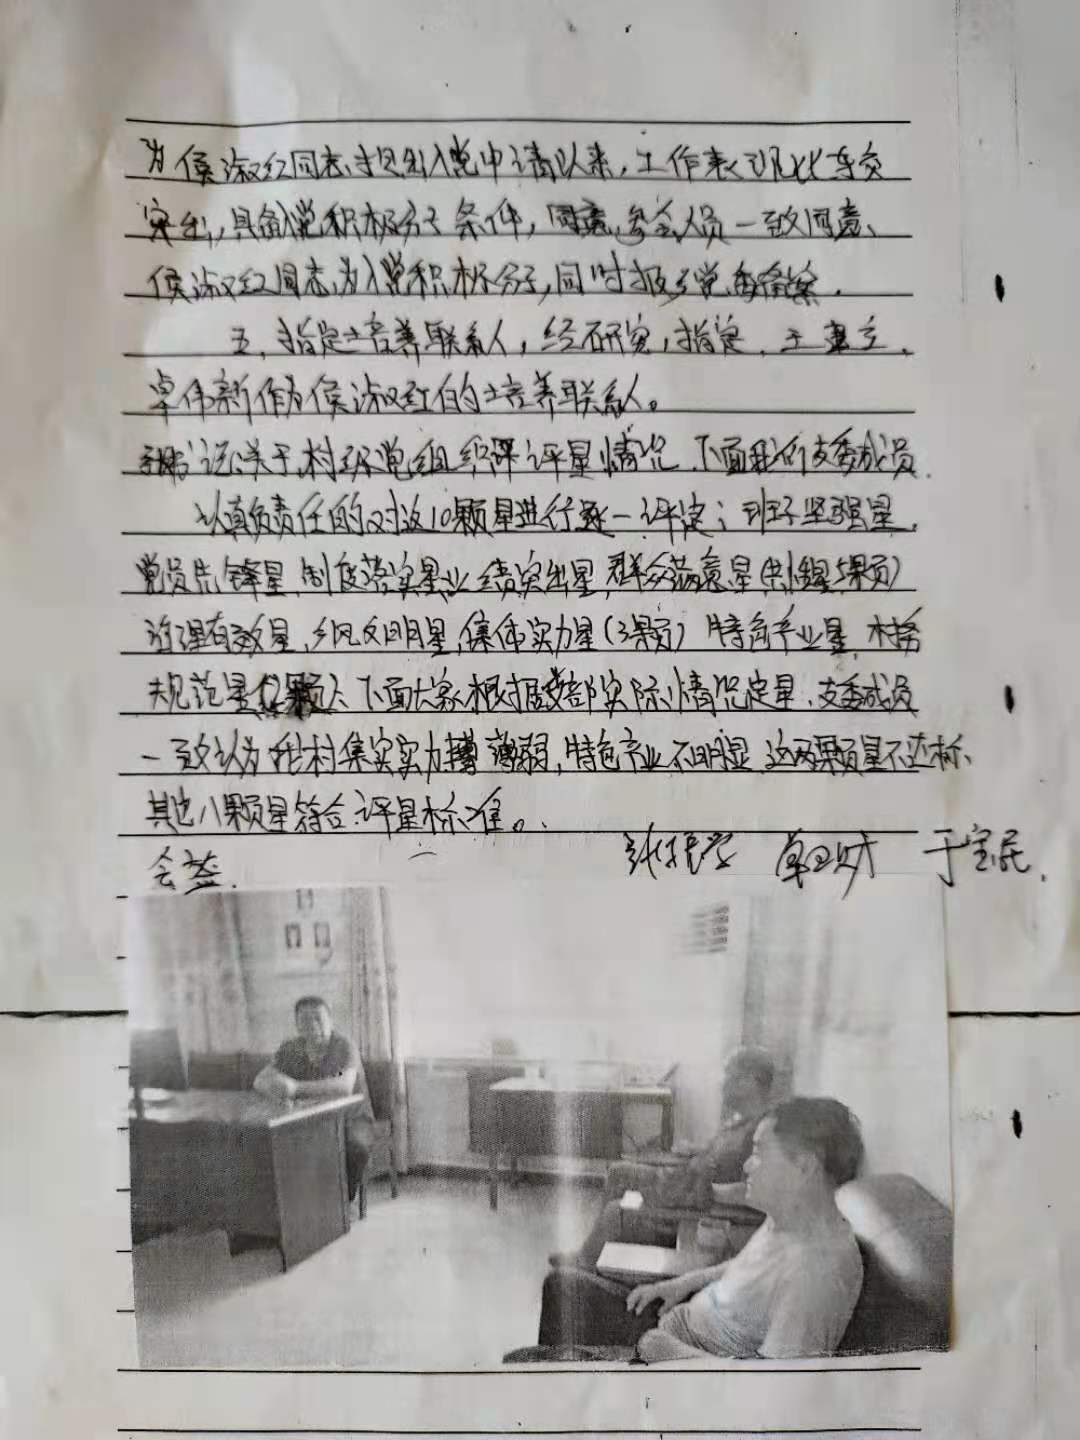 为侯淑红同志,提出入党申请以来,工作表现比较
突出,具备入党积极分子条件,同意,参会人员一致同意、
侯淑红同志为入党积极分子,同时报乡党委备案.
五、指定培养联系人,经研究,指定,王
卓伟新作为侯淑红的培养联系人。
关于村级党组织评星情况.下面我们支委成员.
认真负责任的对这10颗星进行逐一评定;班子坚强星,
党员先锋星,制度落实星业绩突出星,群众满意星(5颗)
治理有效星,乡风文明星,集体实力星(3颗)特色产业星,村务
规范星(2颗)、下面大家根据支部实际情况定星.支委成员
一致认为我村集实实力薄弱,特色产业不明显.这两颗星不达标、
其他八颗星符合评星标准。
会签. 于宝民.